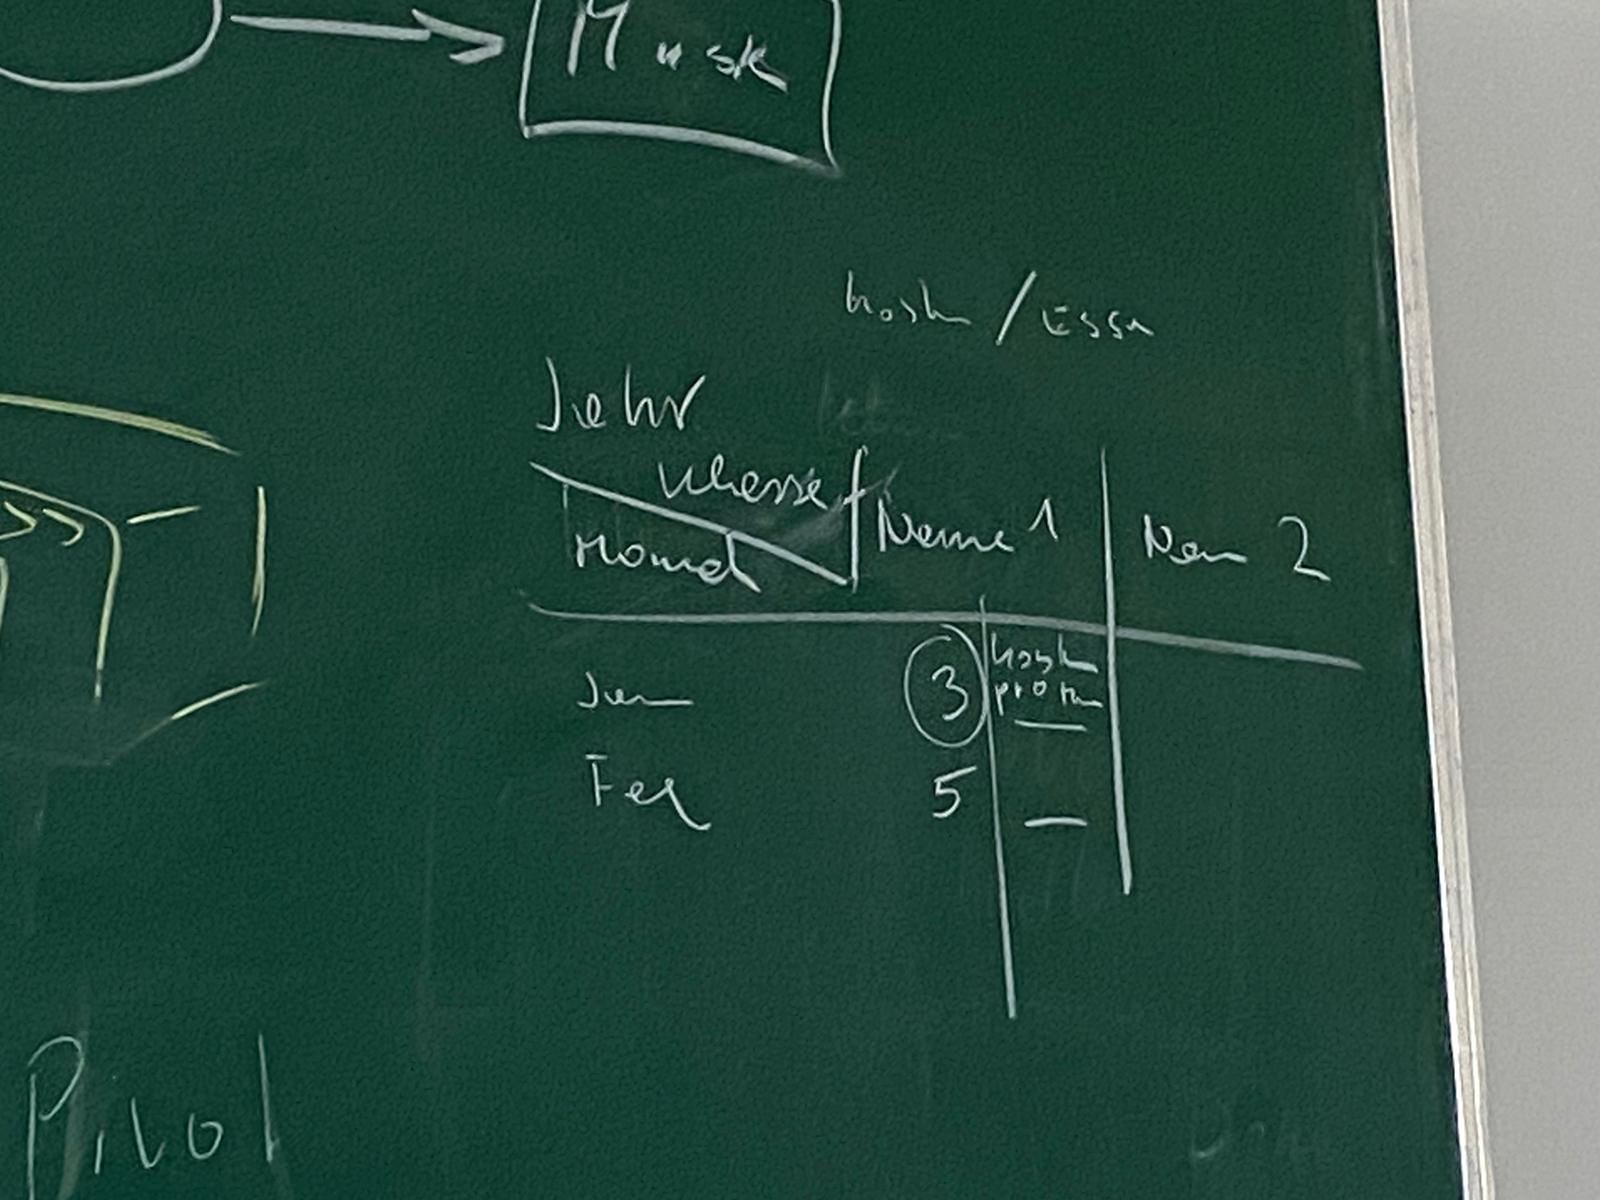 Kosten / Essen
Jahr
Klasse
Monat
Name 1
Nam 2
Jan
3
Kosten
pro
Feb
5
Pivot